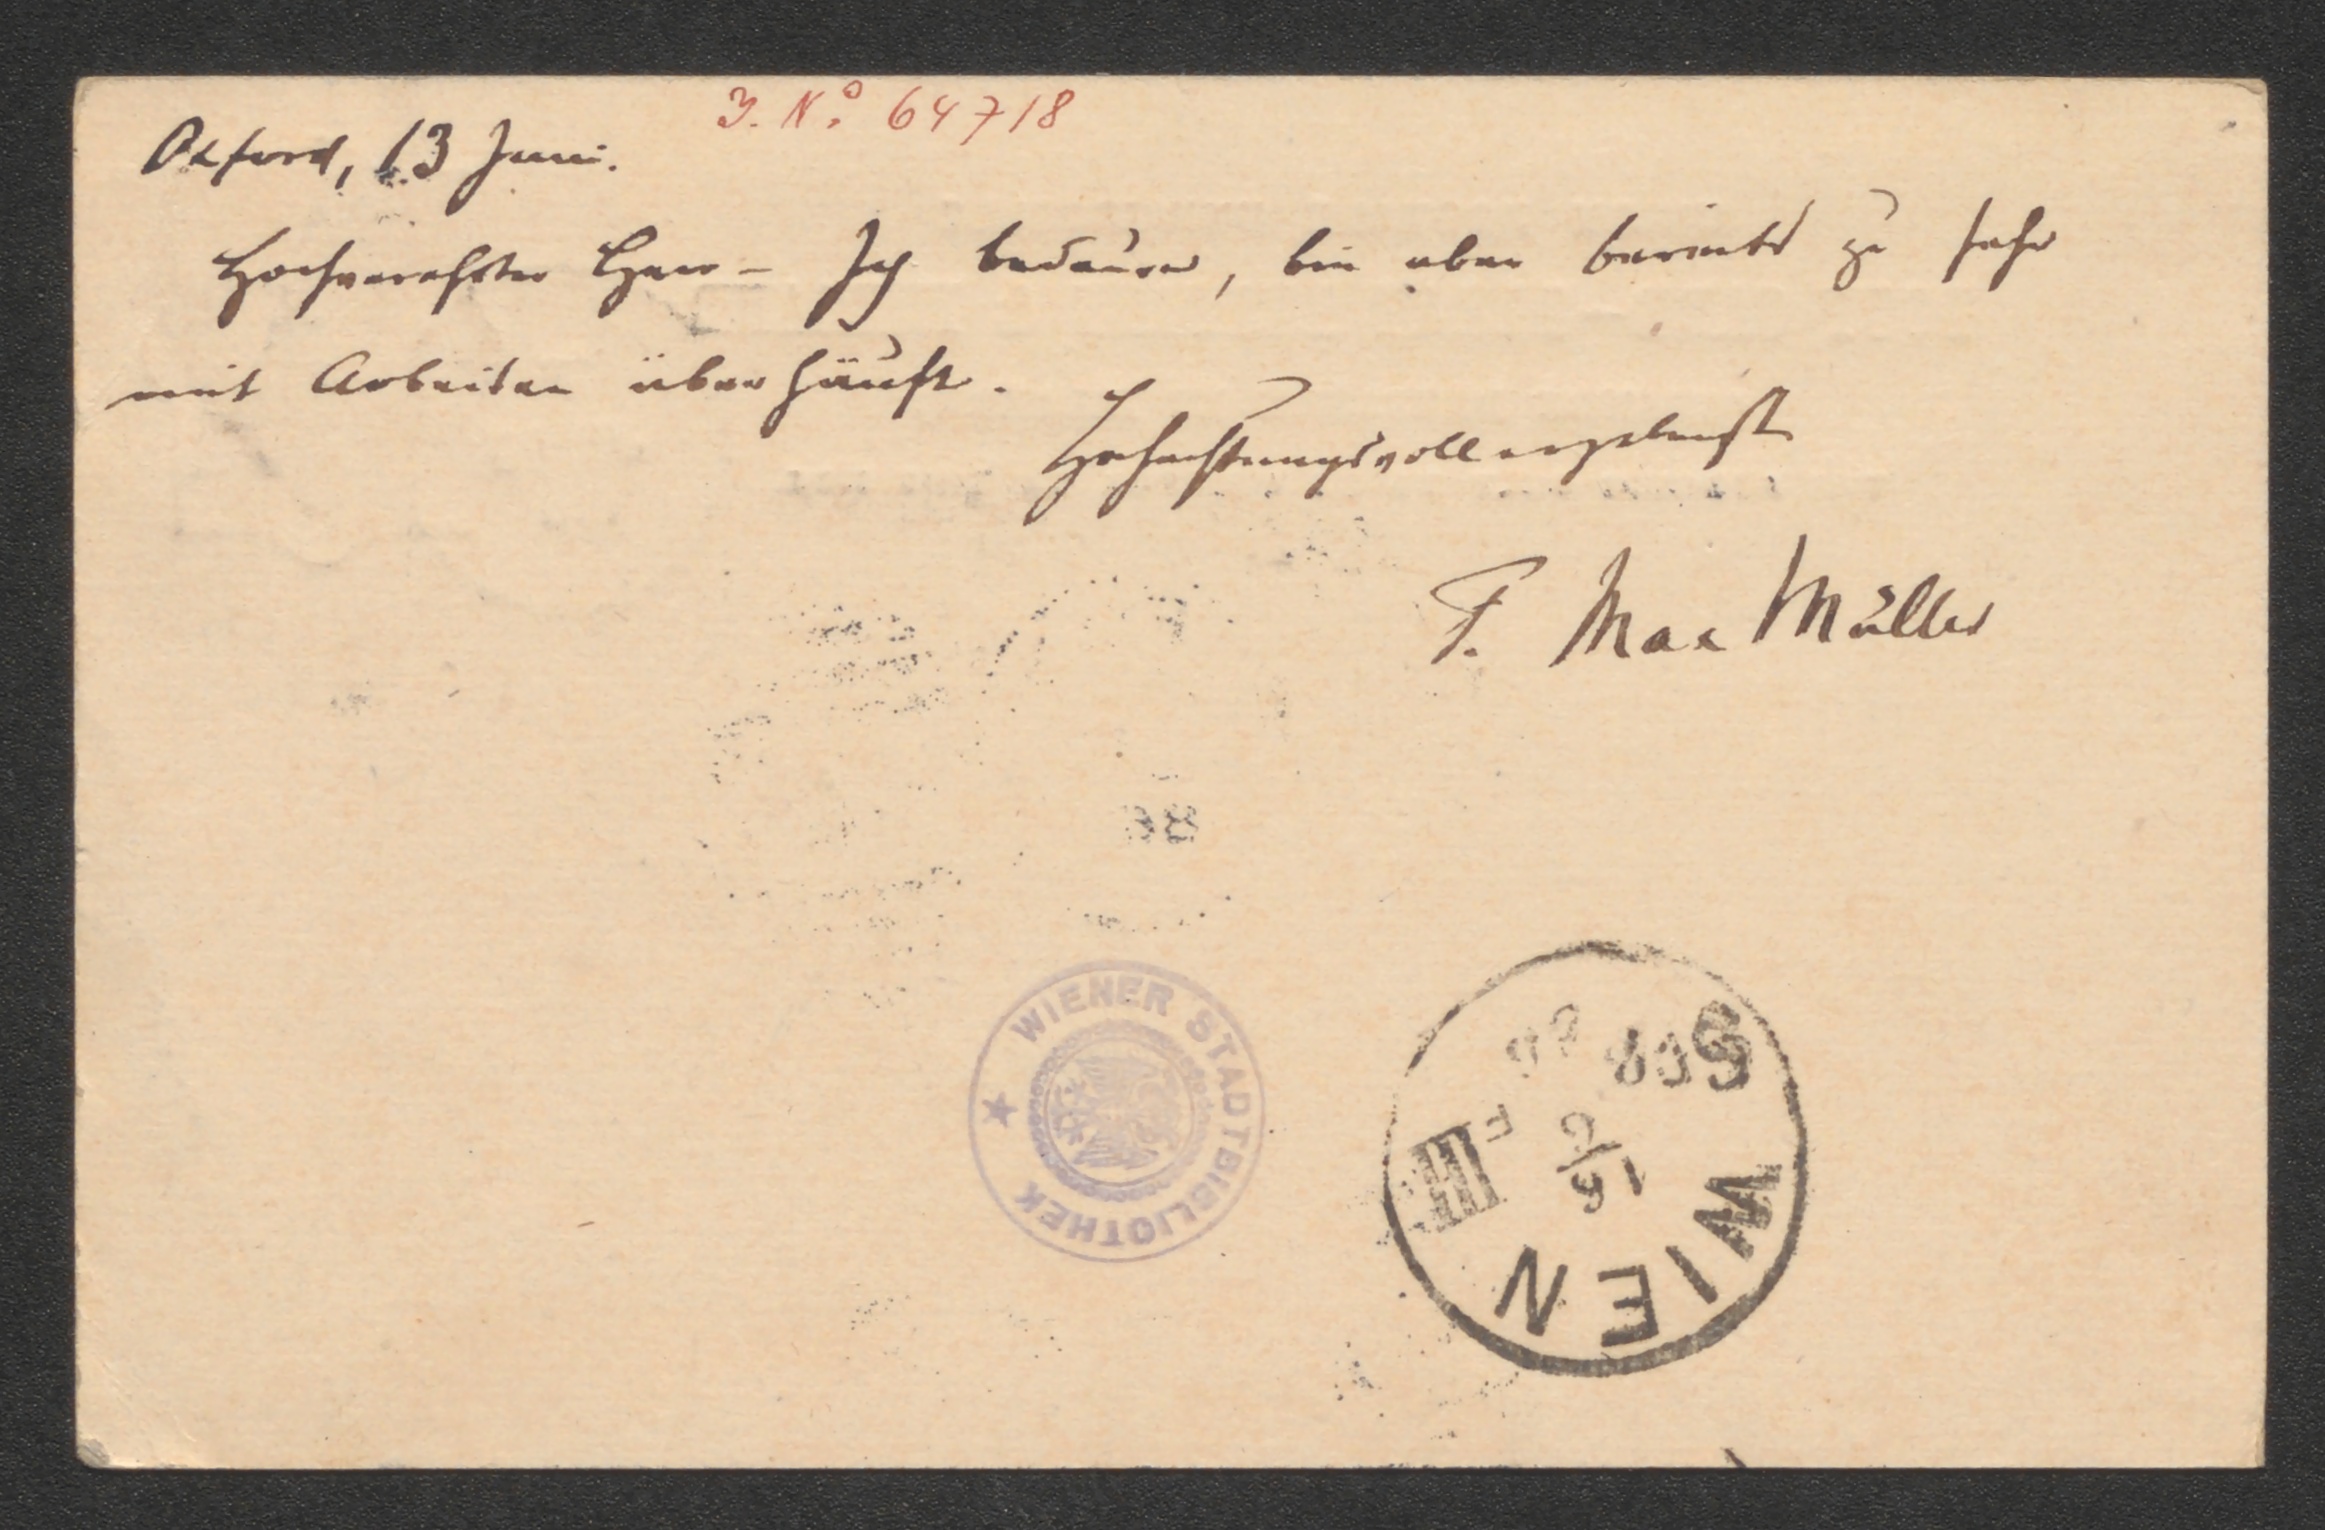 J. N.° 64718
Oxford, 13 Juni.
Hochverehrter Herr – Ich bedaure, bin aber bereits zu sehr
mit Arbeiten überhäuft.
Hochachtungsvoll ergebenst
F. Max Müller
WIENER STADTBIBLIOTHEK
WIEN